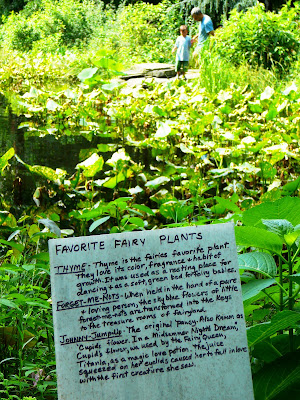 FAVORITE FAIRY PLANTS
THYME - Thyme is the fairies favorite plant.
They love its color, fragrance & habit of
growth. It was used as a resting place for
dancing & as a soft, green bed for fairy babies.
FORGET-ME-NOTS - When held in the hand of a pure
& loving person, the sky blue flowers of little
forget-me-nots are transformed into the keys
to the treasure rooms of fairyland.
JOHNNY-JUMPUP - The original pansy. Also Known as
"Cupids flower. In a Midsummer Night Dream,
Cupids flower, was used by the Fairy Queen,
Titania, as a magic love potion. The juice
squeezed on her eyelids caused her to fall in love
with the first creature she saw.